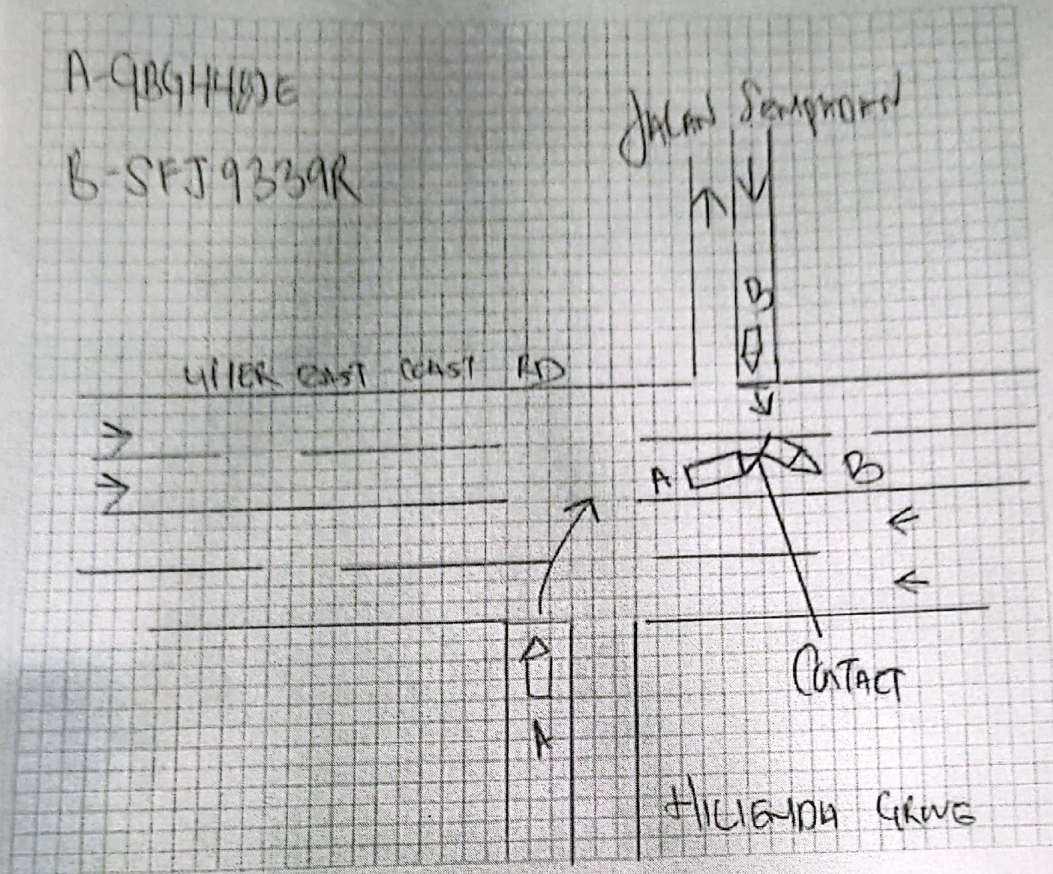 B-SFJ9339R
JALAN SEMPADAN
B
UPPER EAST COAST RD
A B
CONTACT
A
HICIENDA GROVE